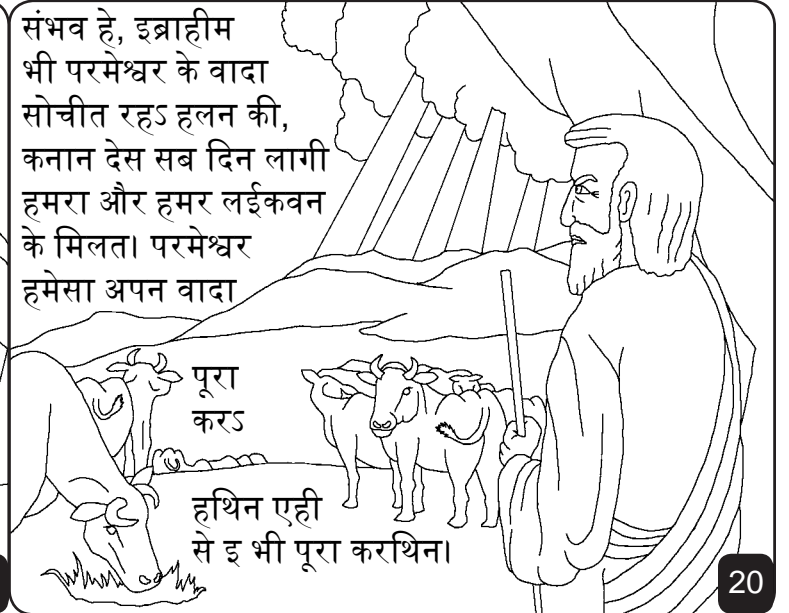 संभव हे, इब्राहीम
भी परमेश्वर के वादा
सोचीत रहऽ हलन की,
कनान देस सब दिन लागी
हमरा और हमर लईकवन
के मिलत। परमेश्वर
हमेसा अपन वादा
पूरा
करऽ
हथिन एही
से इ भी पूरा करथिन।
20